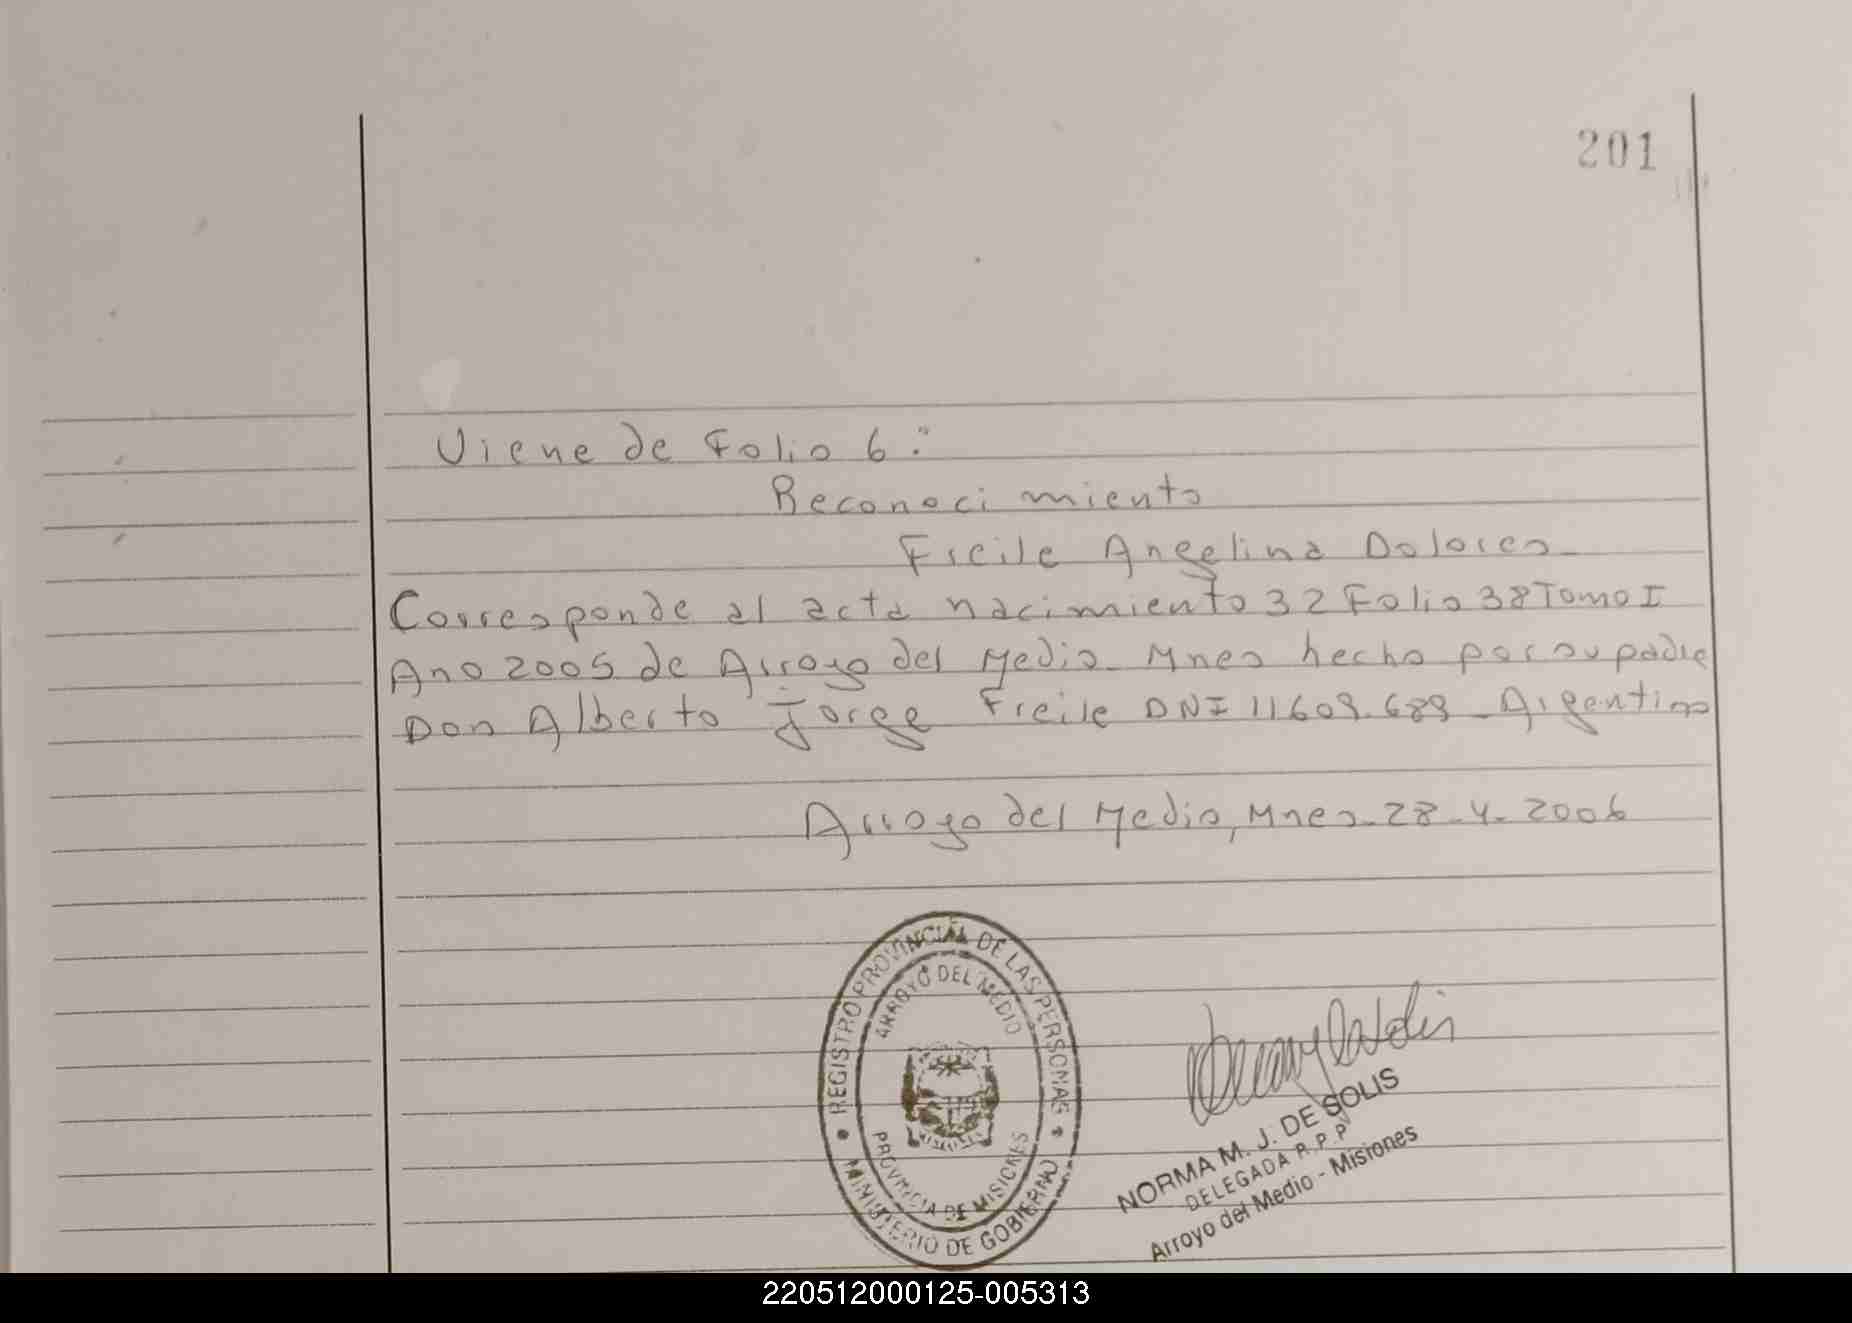 201
Viene de Folio 6:
Reconocimiento
Freile Angelina Dolores
Corresponde al acta nacimiento 32 Folio 38 Tomo I
Ano 2005 de Arroyo del Medio - Mnes hecho por su padre
Don Alberto Jorge Freile DNI 11609.689 - Argentino
Arroyo del Medio, Mnes - 28-4-2006
REGISTRO PROVINCIAL DE LAS PERSONAS
ARROYO DEL MEDIO
PROVINCIA DE MISIONES
MINISTERIO DE GOBIERNO
NORMA M. J. DE SOLIS
DELEGADA R.P.P
Arroyo del Medio - Misiones
220512000125-005313